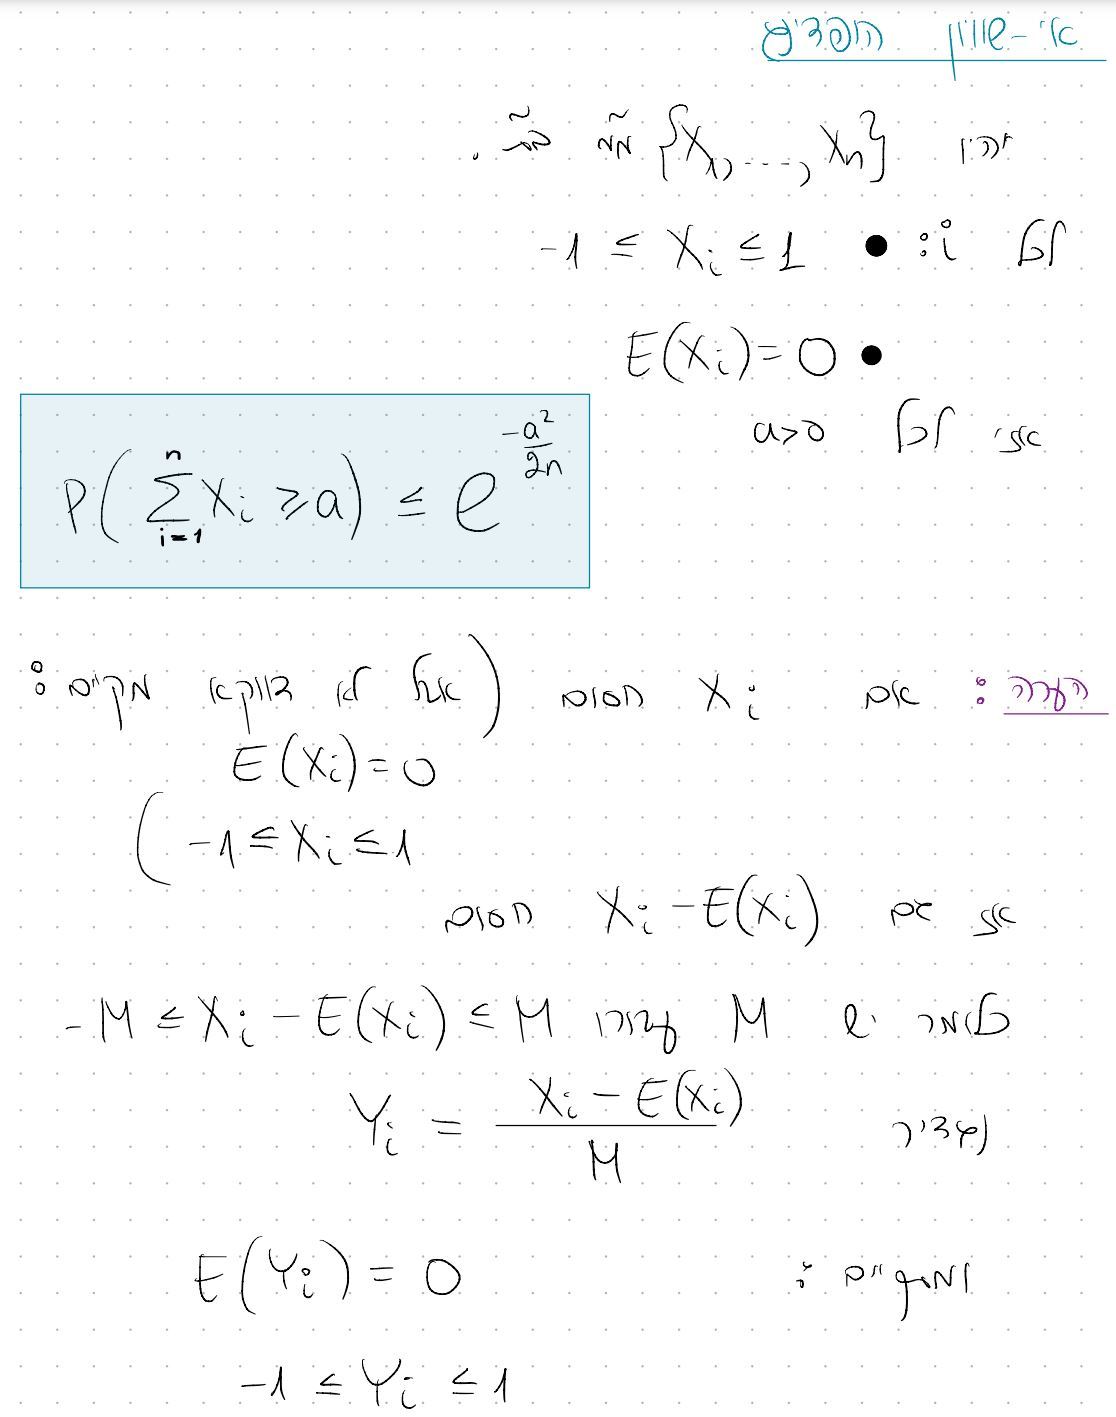 אי-שוויון הופדינג
יהיו {X₁, ..., Xₙ} מ"מ ב"ת.
לכל i: • -1 ≤ Xᵢ ≤ 1
• E(Xᵢ) = 0
אזי לכל a>0
P(∑ᵢ₌₁ⁿ Xᵢ ≥ a) ≤ e^(-a²/2n)
הערה: אם Xᵢ חסום (אבל לא דווקא מקיים:
E(Xᵢ) = 0
-1 ≤ Xᵢ ≤ 1)
אז גם Xᵢ - E(Xᵢ) חסום
כלומר יש M עבורו -M ≤ Xᵢ - E(Xᵢ) ≤ M
נגדיר Yᵢ = (Xᵢ - E(Xᵢ))/M
ומתקיים: E(Yᵢ) = 0
-1 ≤ Yᵢ ≤ 1